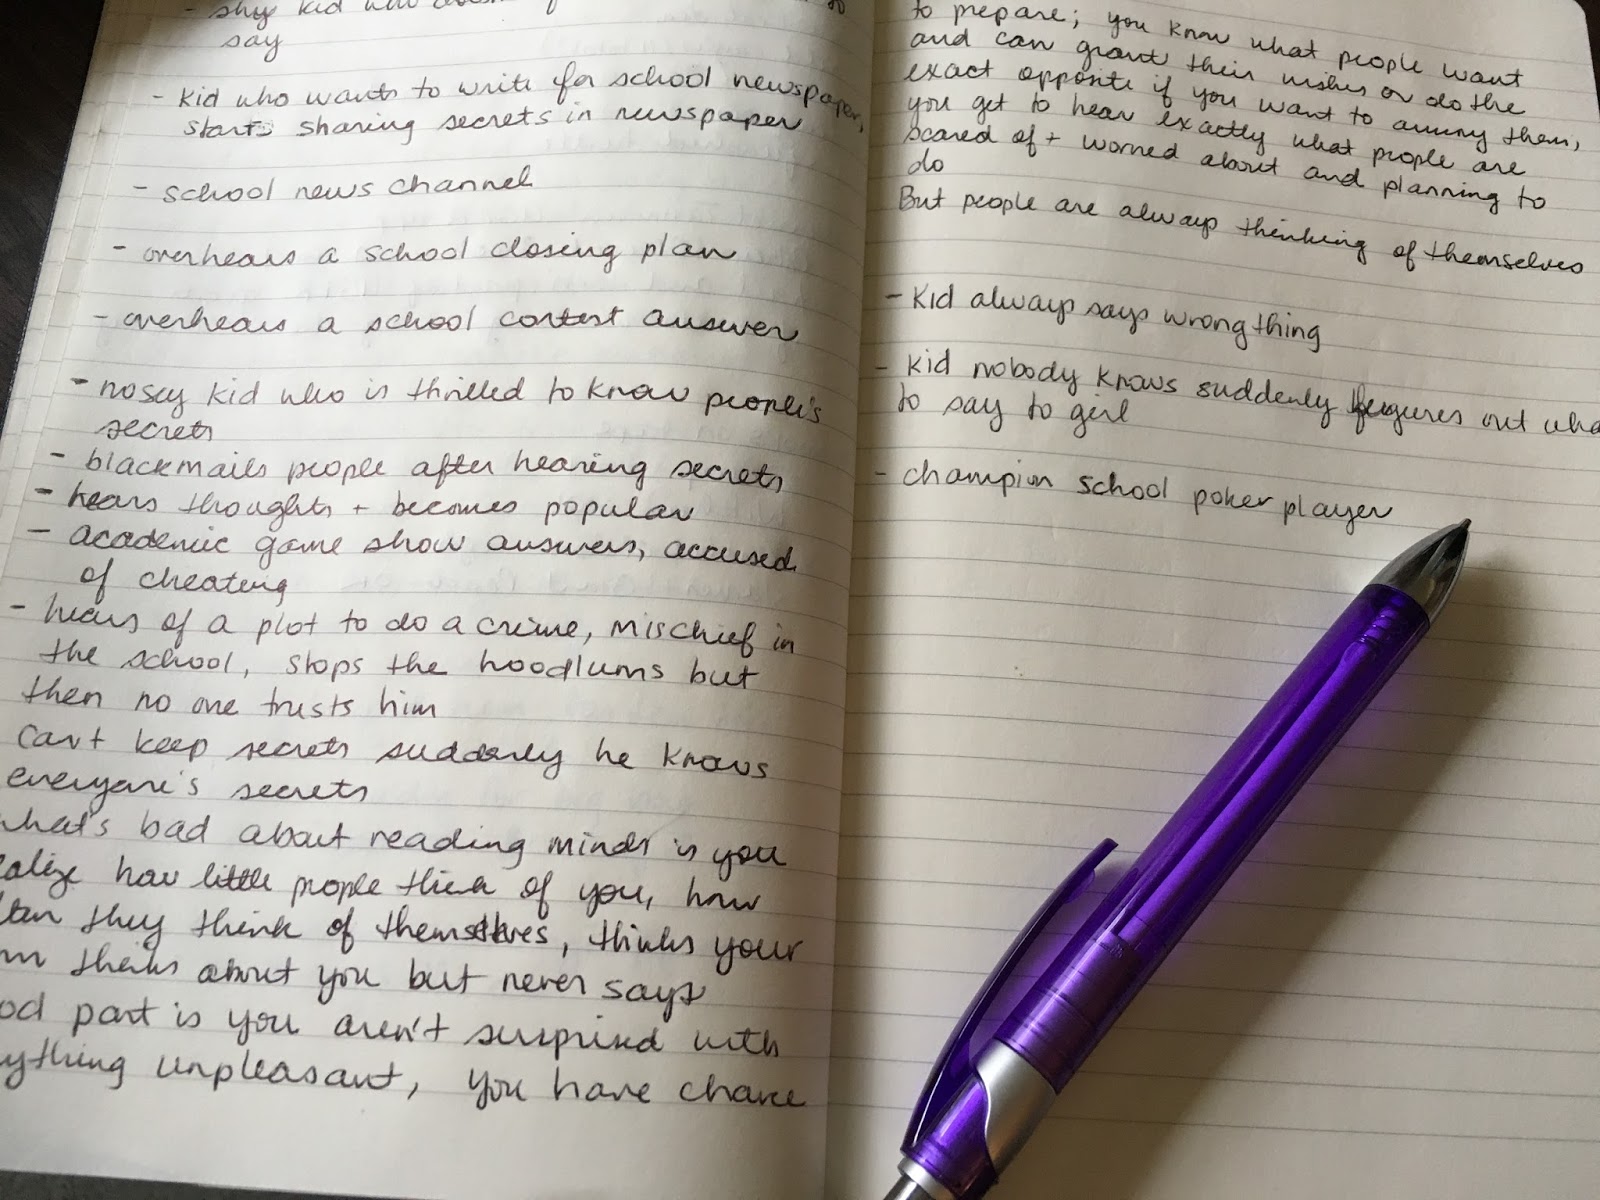 - shy kid who doesn't
say
- kid who wants to write for school newspaper,
starts sharing secrets in newspaper
- school news channel
- overhears a school closing plan
- overhears a school contest answer
- nosey kid who is thrilled to know people's
secrets
- blackmails people after hearing secrets
- hears thoughts + becomes popular
- academic game show answers, accused
of cheating
- hears of a plot to do a crime, mischief in
the school, stops the hoodlums but
then no one trusts him
can't keep secrets suddenly he knows
everyone's secrets
what's bad about reading minds is you
ealize how little people think of you, how
ten they think of themselves, thinks your
thinks about you but never says
od part is you aren't surprised with
ything unpleasant, you have chance
to prepare; you know what people want
and can grant their wishes or do the
exact opposite if you want to annoy them,
you get to hear exactly what people are
scared of + worried about and planning to
do
But people are always thinking of themselves
- Kid always says wrong thing
- kid nobody knows suddenly figures out wha
to say to girl
- champion school poker player